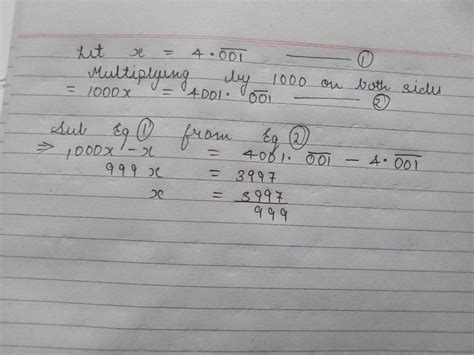 Let x = 4.0̅0̅1̅ ——— ①
Multiplying by 1000 on both sides
= 1000x = 4001.0̅0̅1̅ ——— ②
Sub Eq ① from Eq ②
⇒ 1000x - x = 4001.0̅0̅1̅ - 4.0̅0̅1̅
999x = 3997
x = 3997
999